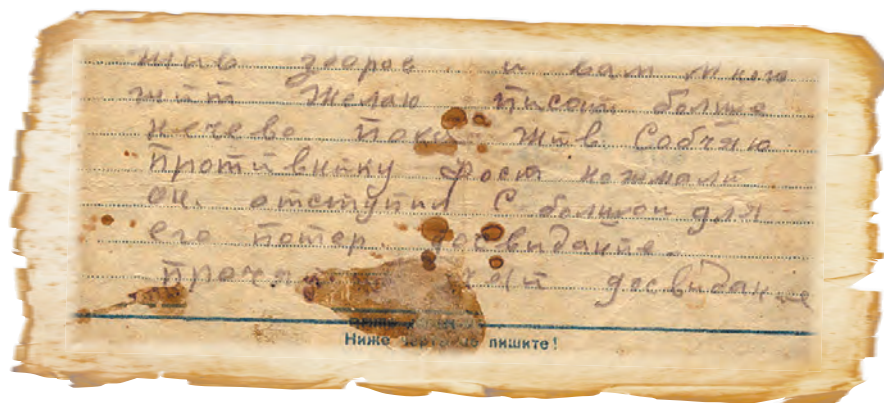 жив здоров и вам много
жит желаю писат болше
нечево пока жив Собчяю
противнику фося нажмали
он отступил С болшой для
его потер. досвидание.
досвидание
Ниже черты не пишите!